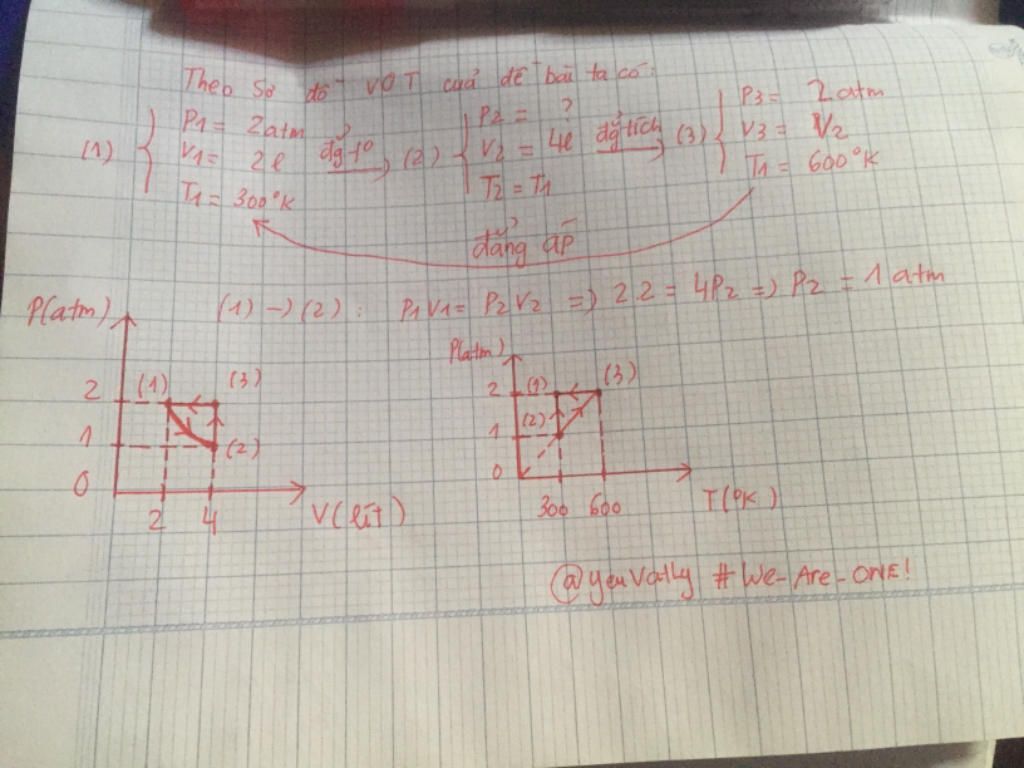 Theo Sơ đồ VOT của đề bài ta có:
(1) { P1 = 2atm V1 = 2l T1 = 300°K đẳng t° → (2) { P2 = ? V2 = 4l T2 = T1 đẳng tích → (3) { P3 = 2atm V3 = V2 T1 = 600°K
đẳng áp
(1) → (2) : P1V1 = P2V2 => 2.2 = 4P2 => P2 = 1 atm
P(atm)
2 (1) (3)
1 (2)
0
2 4 V(lít)
P(atm)
2 (1) (3)
1 (2)
0
300 600 T(°K)
@yeuVatly #We-Are-ONE!